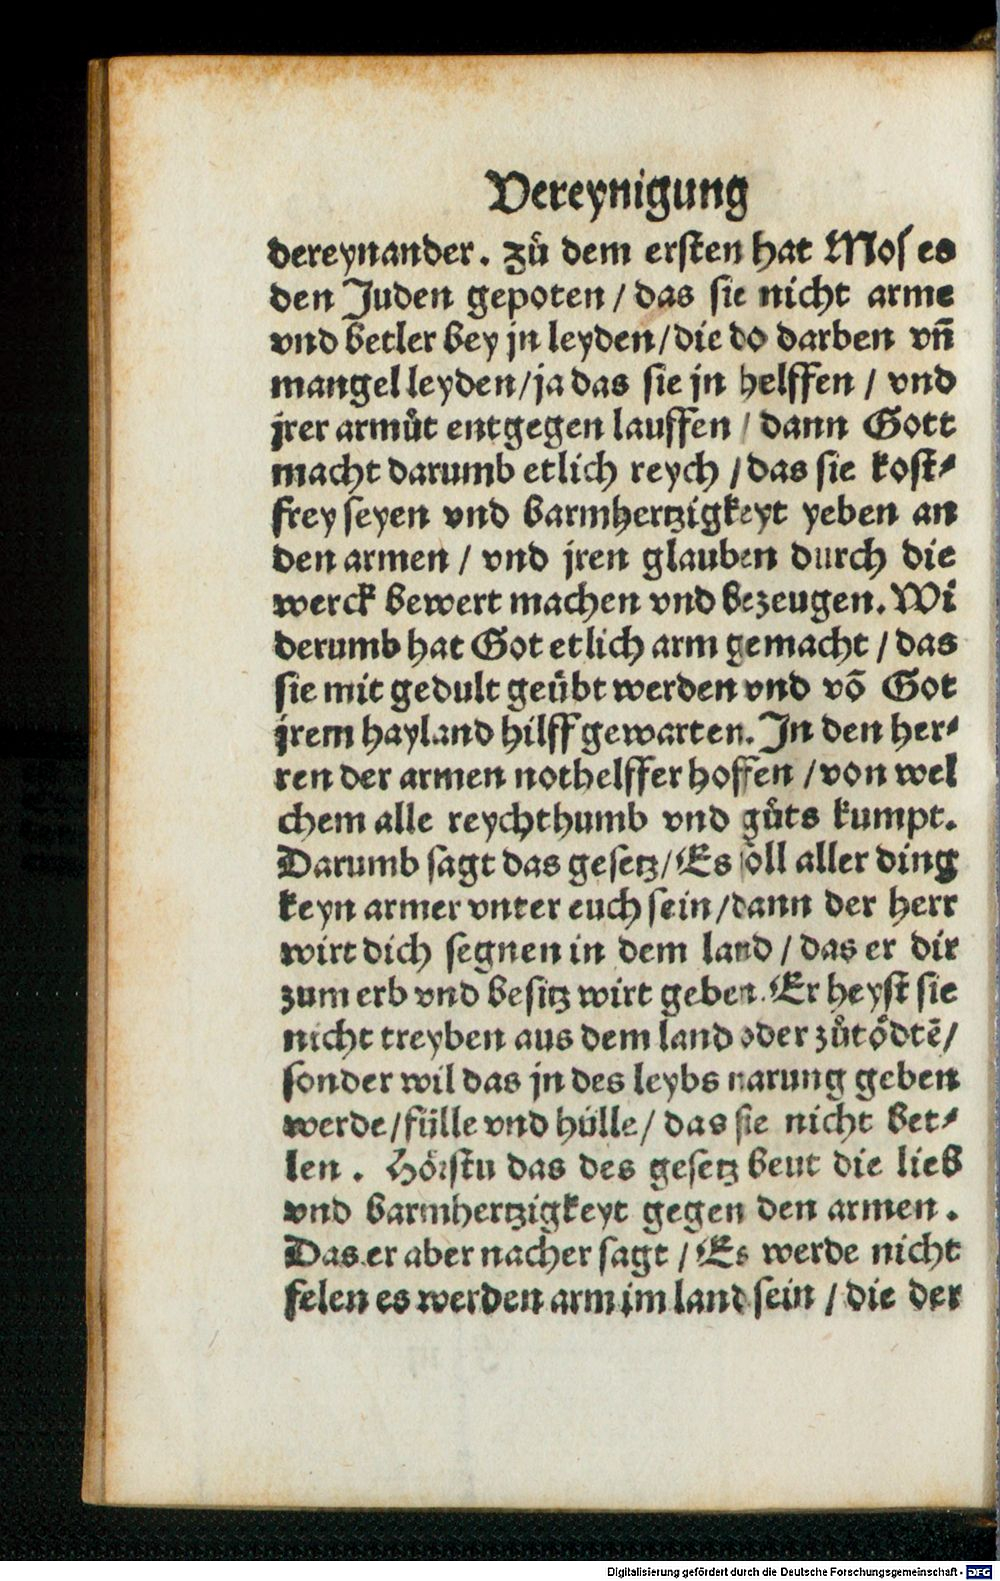 Vereynigung
dereynander. Zů dem ersten hat Moses
den Juden gepoten / das sie nicht arme
vnd betler bey jn leyden / die do darben vñ
mangel leyden / ja das sie jn helffen / vnd
jrer armůt entgegen lauffen / dann Gott
macht darumb etlich reych / das sie kost⸗
frey seyen vnd barmhertzigkeyt yeben an
den armen / vnd jren glauben durch die
werck bewert machen vnd bezeugen. Wi
derumb hat Got etlich arm gemacht / das
sie mit gedult geübt werden vnd võ Got
jrem hayland hilff gewarten. In den her⸗
ren der armen nothelffer hoffen / von wel
chem alle reychthumb vnd gůts kumpt.
Darumb sagt das gesetz / Es soll aller ding
keyn armer vnter euch sein / dann der herr
wirt dich segnen in dem land / das er dir
zum erb vnd besitz wirt geben. Er heyst sie
nicht treyben aus dem land oder zůtödtẽ /
sonder wil das jn des leybs narung geben
werde / fülle vnd hülle / das sie nicht bet⸗
len. Hörstu das des gesetz beut die lieb
vnd barmhertzigkeyt gegen den armen.
Das er aber nacher sagt / Es werde nicht
felen es werden arm im land sein / die der
Digitalisierung gefördert durch die Deutsche Forschungsgemeinschaft - DFG